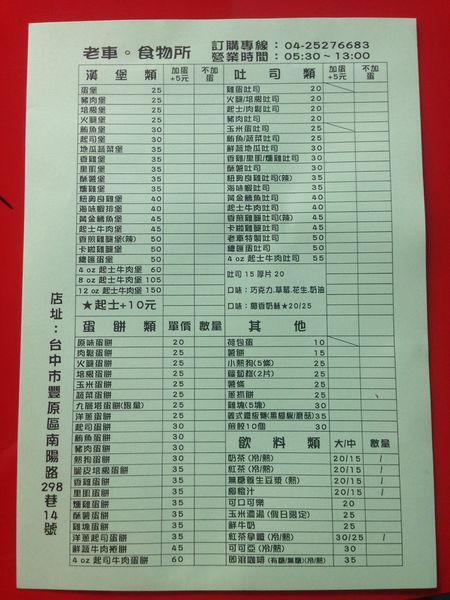 老車。食物所
訂購專線：04-25276683
營業時間：05:30~13:00
漢堡類 加蛋+5元 不加蛋
蛋堡 25
豬肉堡 25
培根堡 25
火腿堡 25
鮪魚堡 30
起司堡 30
地瓜蔬菜堡 35
香雞堡 35
里肌堡 35
酥薯堡 35
燻雞堡 35
紐奧良雞堡 40
海味蝦排堡 40
黃金鱈魚堡 45
起士牛肉堡 45
香煎雞腿堡(辣) 50
卡啦雞腿堡 50
總匯蛋堡 50
4 oz 起士牛肉堡 60
8 oz 起士牛肉堡 105
12 oz 起士牛肉堡 150
★起士+10元
吐司類 加蛋+5元 不加蛋
雞蛋吐司 20
火腿/培根吐司 20
起士/肉鬆吐司 20
豬肉吐司 20
玉米蛋吐司 25
鮪魚/蔬菜吐司 25
鮮蔬地瓜吐司 30
香雞/里肌/燻雞吐司 30
酥薯吐司 30
紐奧良雞吐司(辣) 35
海味蝦吐司 35
黃金鱈魚吐司 40
起士牛肉吐司 40
香煎雞腿吐司(辣) 45
卡啦雞腿吐司 45
老車特製吐司 50
總匯蛋吐司 50
4 oz 起士牛肉吐司 55
吐司 15 厚片 20
口味：巧克力,草莓,花生,奶油
口味：獨香奶酥★20/25
蛋餅類 單價 數量
原味蛋餅 20
肉鬆蛋餅 25
火腿蛋餅 25
培根蛋餅 25
玉米蛋餅 25
蔬菜蛋餅 25
九層塔蛋餅(限量) 25
洋蔥蛋餅 25
起司蛋餅 30
鮪魚蛋餅 30
豬肉蛋餅 30
熱狗蛋餅 30
脆皮培根蛋餅 35
香雞蛋餅 35
里肌蛋餅 35
燻雞蛋餅 35
酥薯蛋餅 35
雞塊蛋餅 35
洋蔥起司蛋餅 35
鮮蔬牛肉捲餅 45
4 oz 起司牛肉蛋餅 60
其他
荷包蛋 10
薯餅 15
小熱狗(5條) 25
蘿蔔糕(2片) 25
薯條 25
蔥抓餅 25
雞塊(5塊) 30
義式鐵板麵(黑胡椒/蘑菇) 35
煎餃10個 30
飲料類 大/中 數量
奶茶(冷/熱) 20/15 /
紅茶(冷/熱) 20/15 /
無糖養生豆漿(熱) 20/15 /
柳橙汁 20/15 /
可口可樂 20
玉米濃湯(假日限定) 25
鮮牛奶 25
紅茶拿鐵(冷/熱) 30/25 /
可可亞(冷/熱) 30
即溶咖啡(有糖/無糖)(冷/熱) 35
店址：台中市豐原區南陽路298巷14號